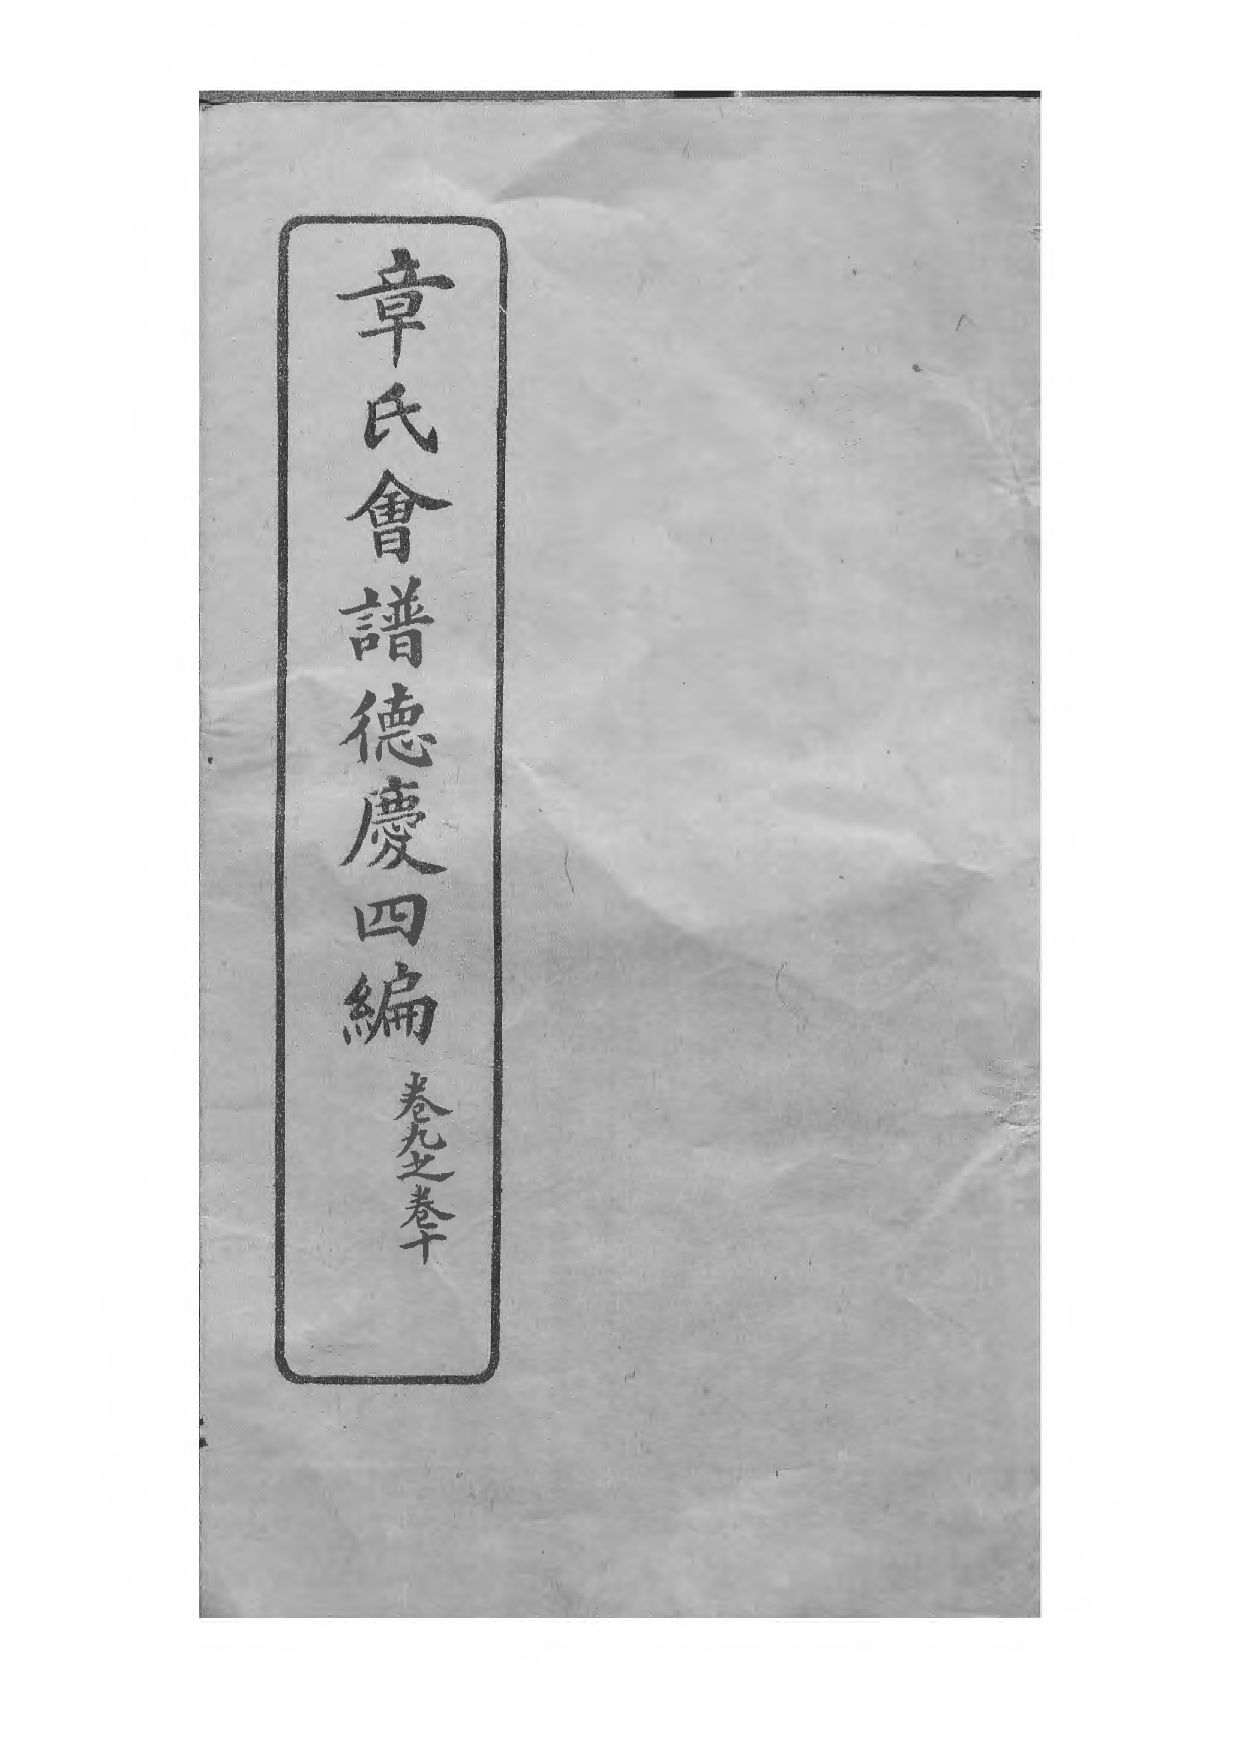 章氏會譜德慶四編
卷九之卷十